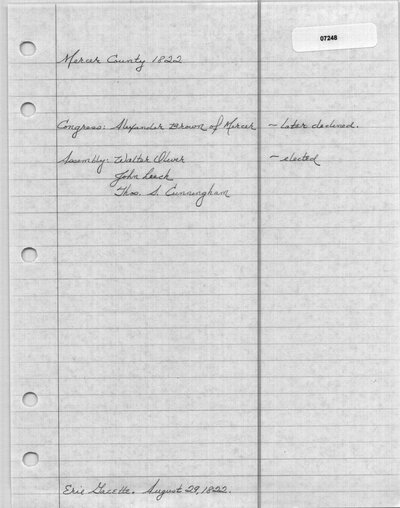 07248
Mercer County 1822
Congress: Alexander Brown of Mercer - Later declined.
Assembly: Walter Oliver - elected
John Leech
Thos. S. Cunningham
Erie Gazette. August 29, 1822.